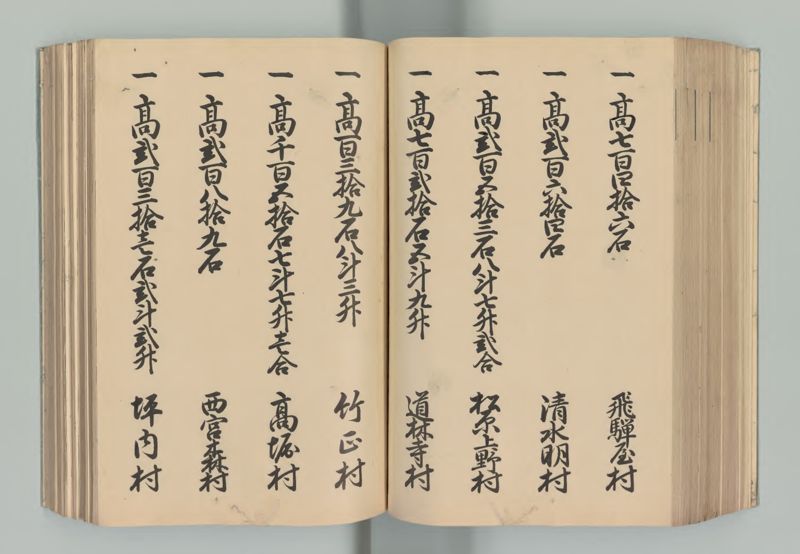 一 高七百四拾六石 飛騨屋村
一 高弐百六拾四石 清水明村
一 高弐百五拾三石八斗七升弐合 松原上野村
一 高七百弐拾石五斗九升 道林寺村
一 高百三拾九石八斗三升 竹正村
一 高千百五拾石七斗七升壱合 高堀村
一 高弐百八拾九石 西宮森村
一 高弐百三拾壱石弐斗弐升 坪内村